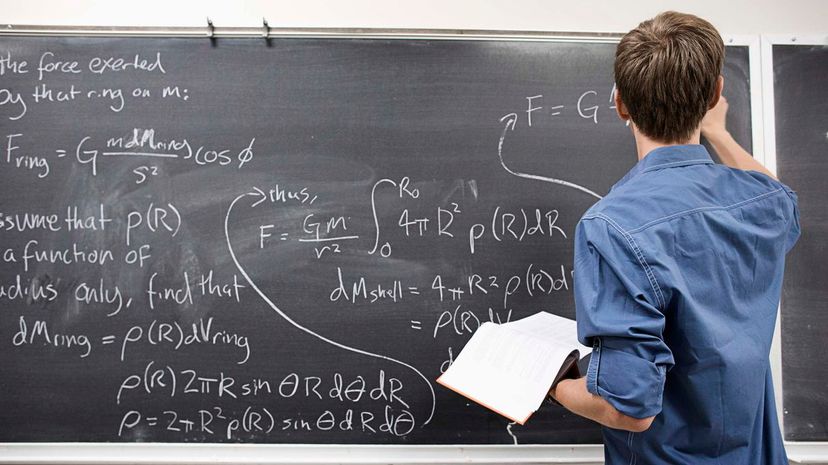 the force exerted
by that ring on m:
F_ring = G m dM_ring / s² cos ϕ
assume that ρ(R)
a function of
radius only, find that
dM_ring = ρ(R) dV_ring
ρ(R) 2πR sin θ R dθ dR
ρ = 2πR² ρ(R) sin θ dR dθ
thus,
F = Gm / r² ∫₀^R₀ 4πR² ρ(R) dR
dM_shell = 4πR² ρ(R) dR
= ρ(R)
F = G